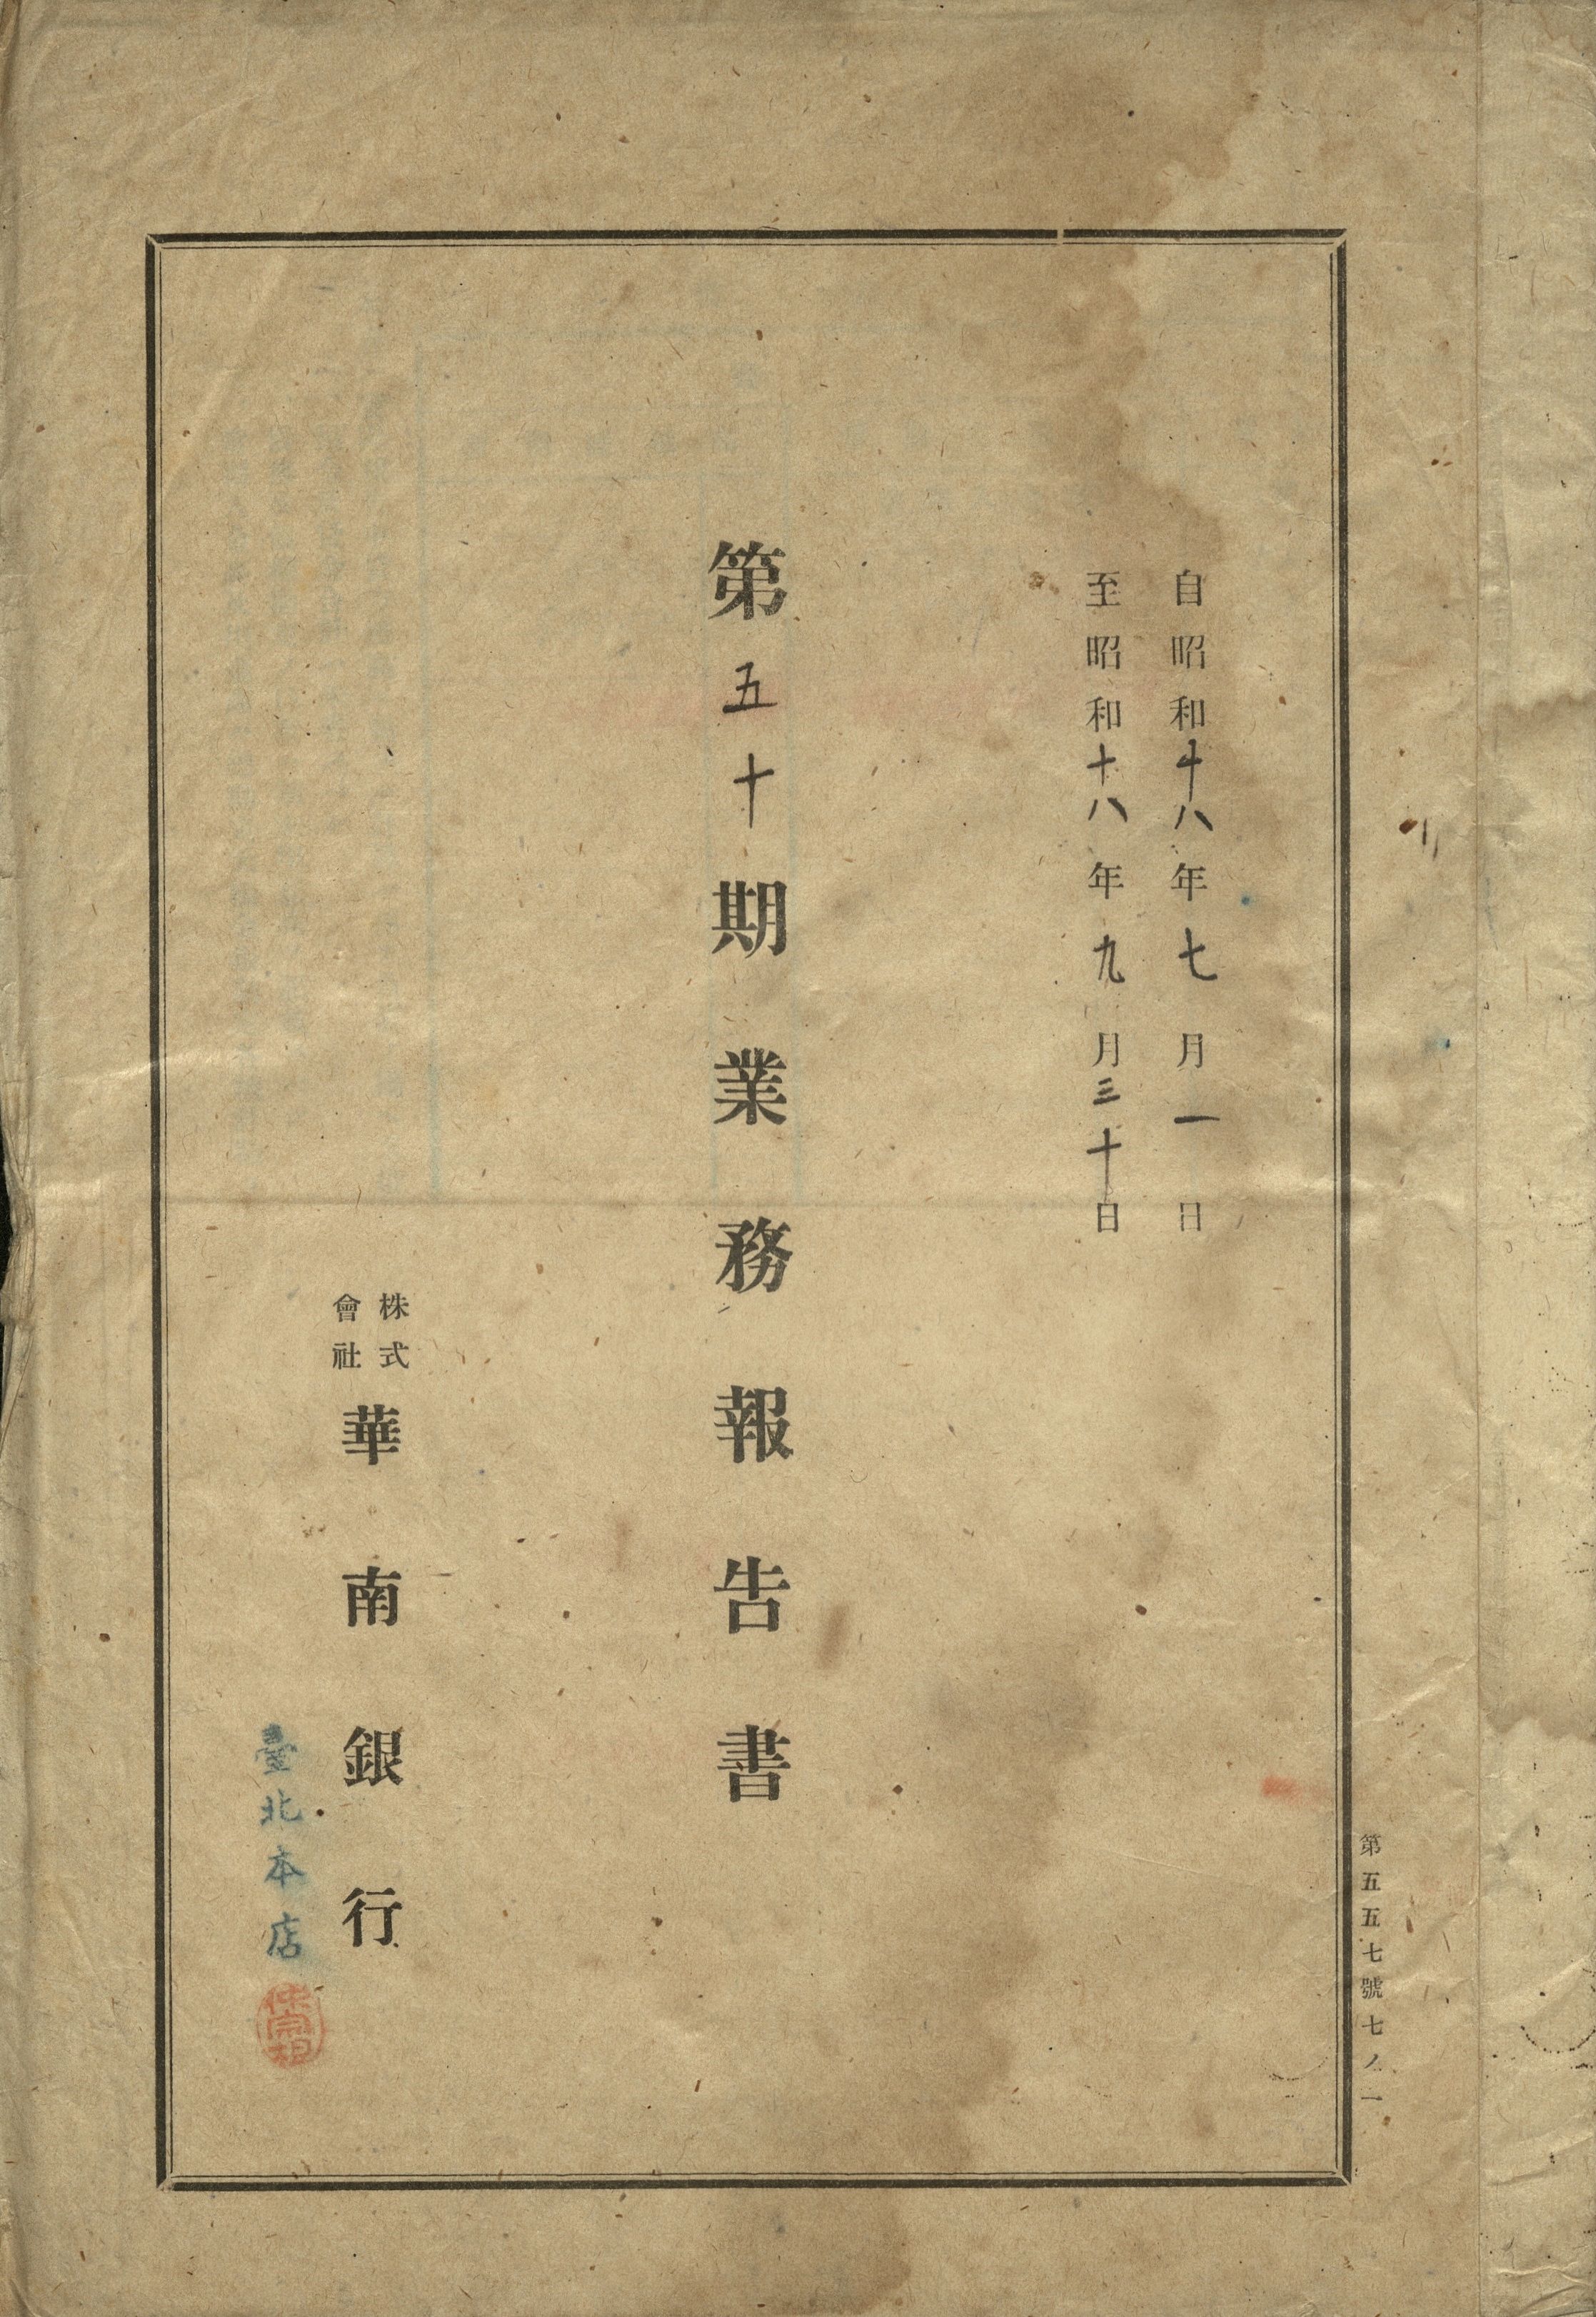 自昭和十八年七月一日
至昭和十八年九月三十日
第五十期業務報告書
株式會社華南銀行
臺北本店
第五五七號七ノ一